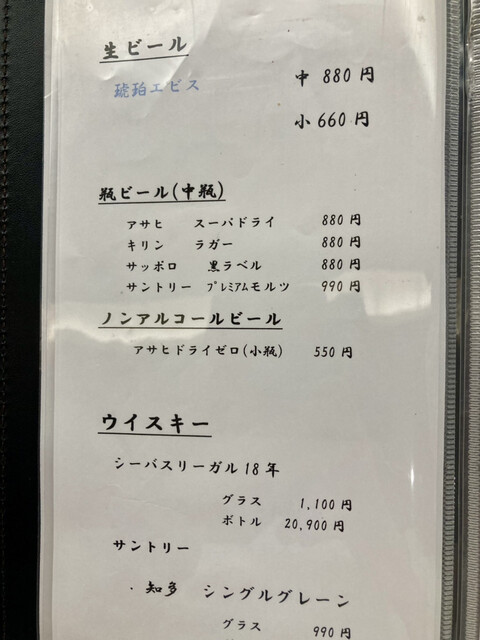 生ビール
琥珀エビス
中 880円
小 660円
瓶ビール(中瓶)
アサヒ スーパドライ 880円
キリン ラガー 880円
サッポロ 黒ラベル 880円
サントリー プレミアムモルツ 990円
ノンアルコールビール
アサヒドライゼロ(小瓶) 550円
ウイスキー
シーバスリーガル18年
グラス 1,100円
ボトル 20,900円
サントリー
・知多 シングルグレーン
グラス 990円